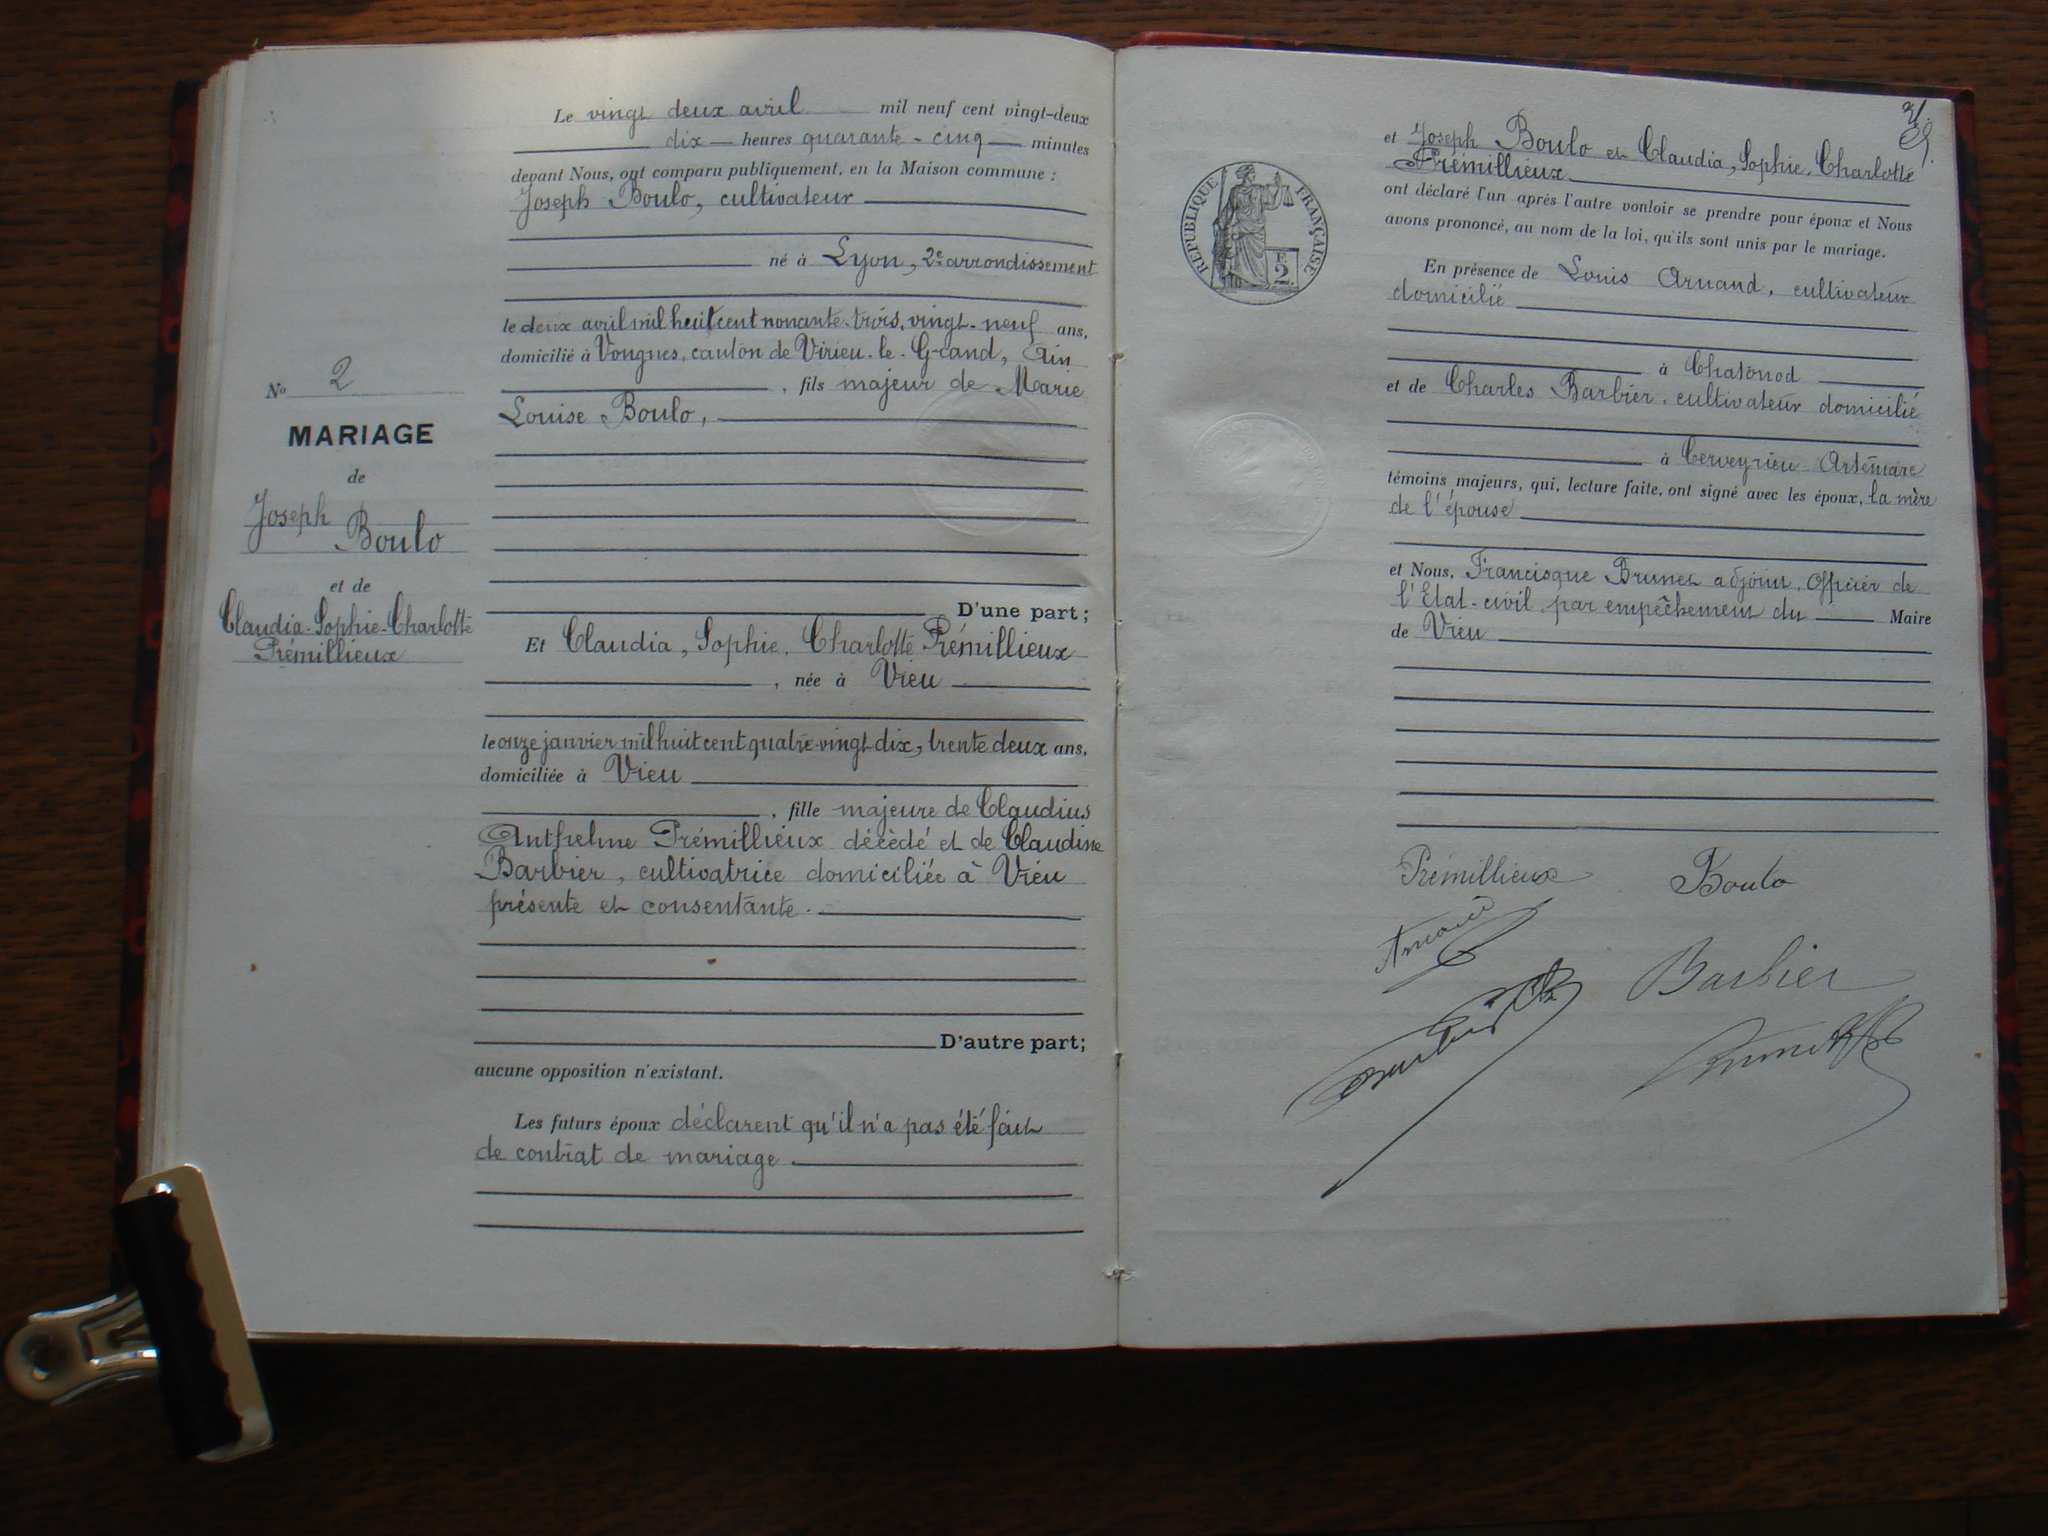 Le vingt deux avril mil neuf cent vingt-deux
dix heures quarante-cinq minutes
devant Nous, ont comparu publiquement, en la Maison commune :
Joseph Boulo, cultivateur
né à Lyon, 2e arrondissement
le deux avril mil huit cent nonante-trois, vingt-neuf ans,
domicilié à Vongnes, canton de Virieu-le-Grand, Ain
, fils majeur de Marie
Louise Boulo,
No 2
MARIAGE
de
Joseph
Boulo
et de
Claudia-Sophie-Charlotte
Prémillieux
D'une part ;
Et Claudia, Sophie, Charlotte Prémillieux
, née à Vieu
le onze janvier mil huit cent quatre-vingt dix, trente deux ans,
domiciliée à Vieu
, fille majeure de Claudius
Anthelme Prémillieux décédé et de Claudine
Barbier, cultivatrice domiciliée à Vieu
présente et consentante.
D'autre part ;
aucune opposition n'existant.
Les futurs époux déclarent qu'il n'a pas été fait
de contrat de mariage
REPUBLIQUE FRANÇAISE
F
2
et Joseph Boulo et Claudia, Sophie, Charlotte
Prémillieux
ont déclaré l'un après l'autre vouloir se prendre pour époux et Nous
avons prononcé, au nom de la loi, qu'ils sont unis par le mariage.
En présence de Louis Arnand, cultivateur
domicilié
à Chatonod
et de Charles Barbier, cultivateur domicilié
à Cerveyrieu-Artemare
témoins majeurs, qui, lecture faite, ont signé avec les époux, la mère
de l'épouse
et Nous, Francisque Brunet adjoint, Officier de
l'Etat-civil, par empêchement du Maire
de Vieu
Prémillieux Boulo
Barbier